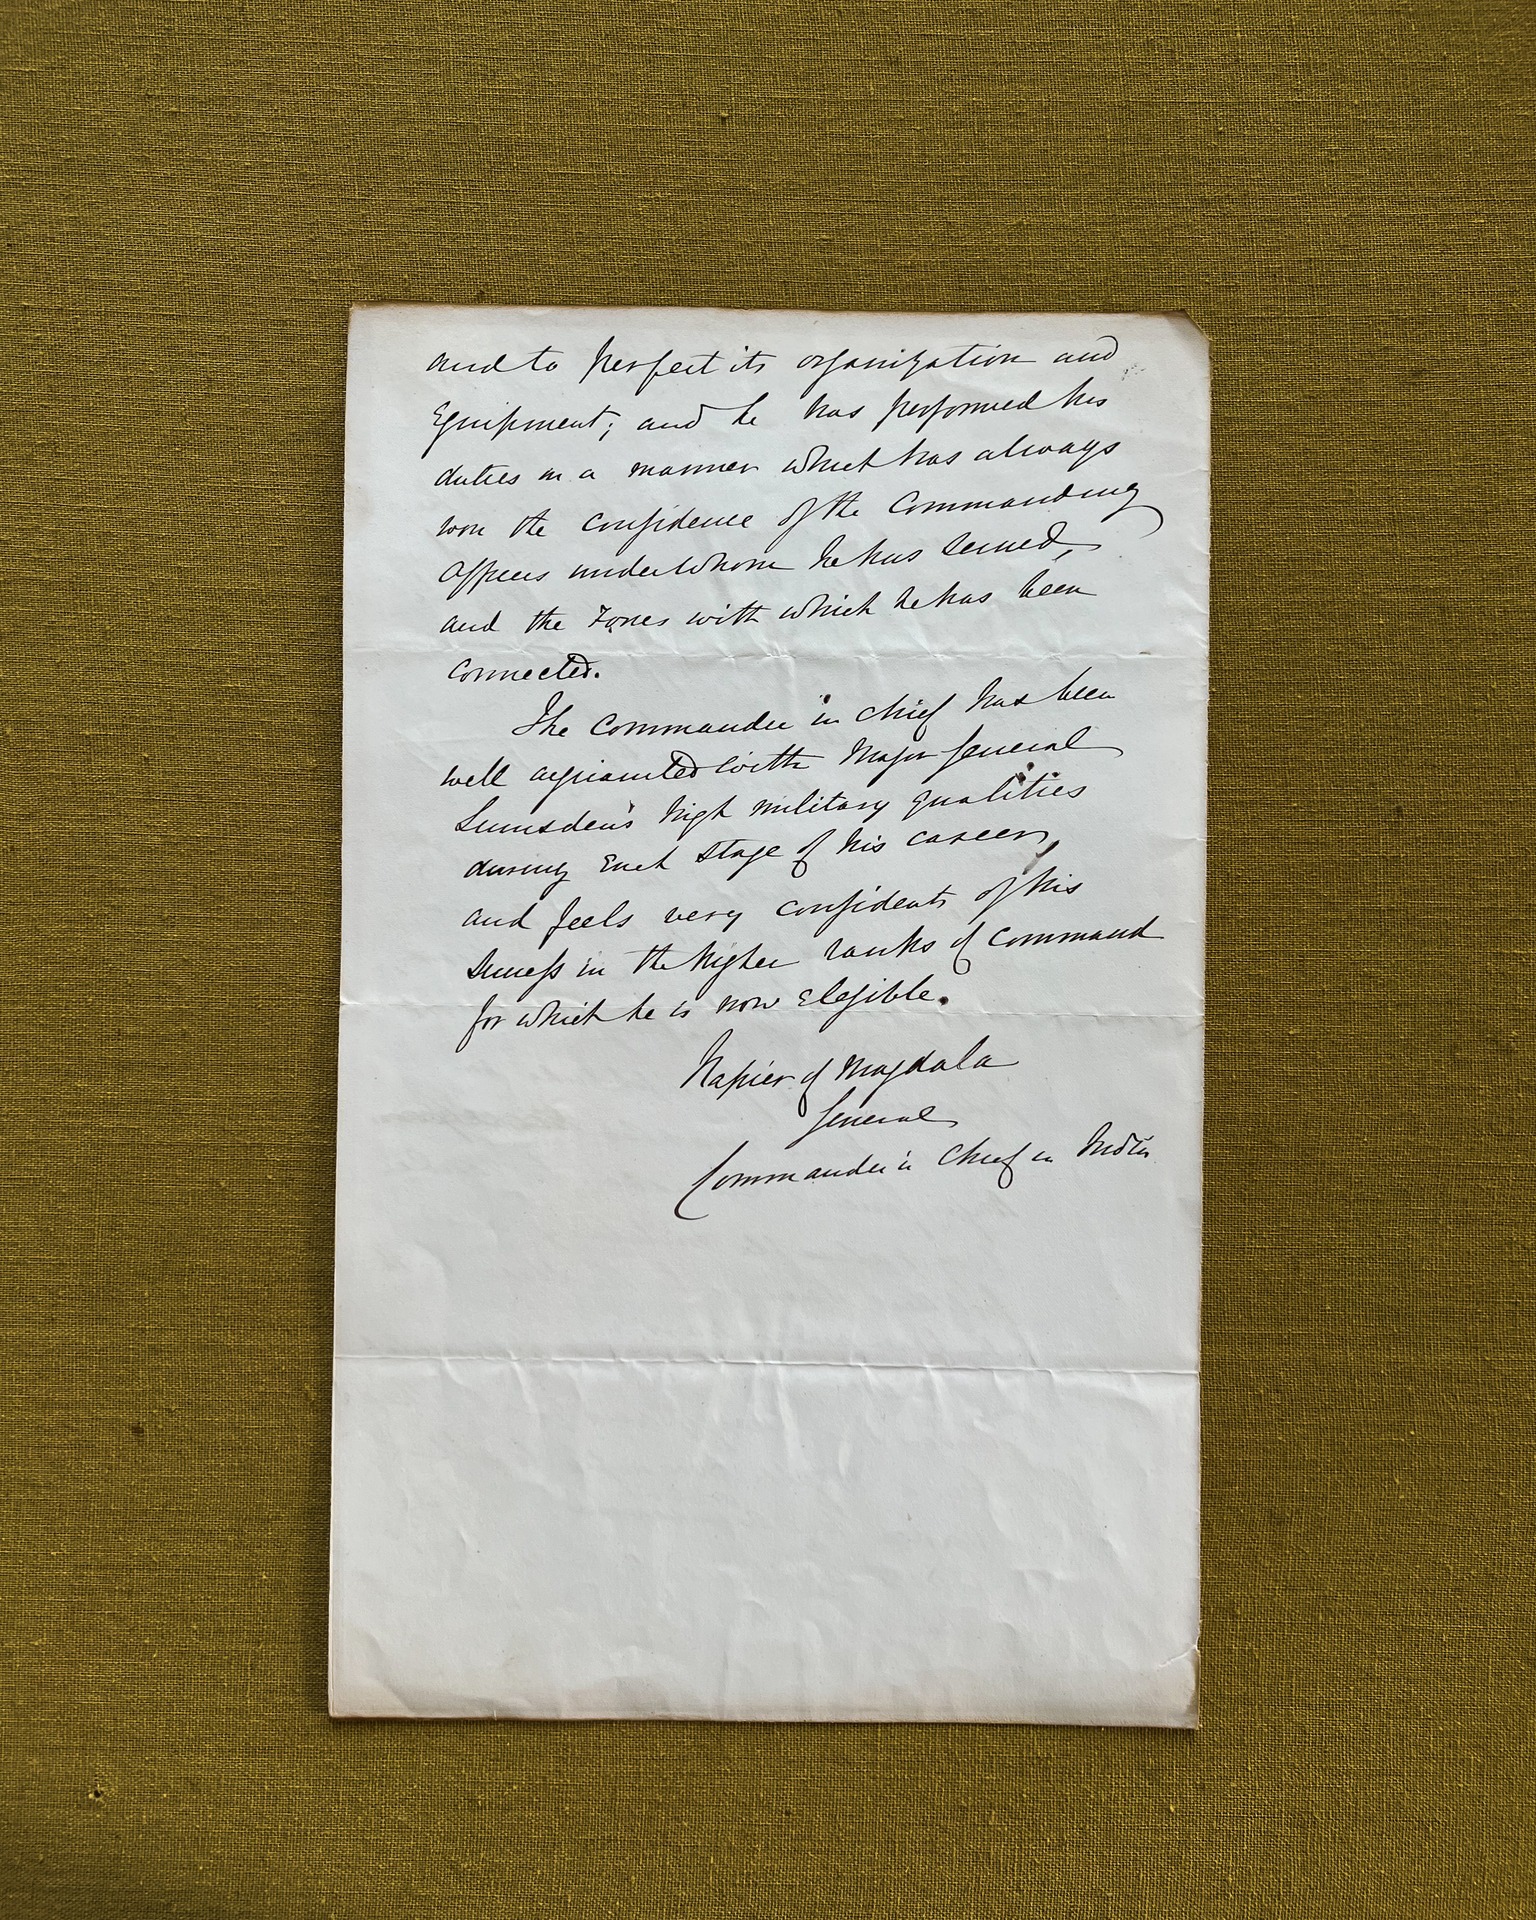 and to perfect its organization and
Equipment; and he has performed his
duties in a manner which has always
won the confidence of the Commanding
Officers under whom he has served,
and the Forces with which he has been
connected.
The Commander in Chief has been
well acquainted with Major General
Lumsden's high military qualities
during each stage of his career,
and feels very confident of his
success in the higher ranks of Command
for which he is now Eligible.
Napier of Magdala
General
Commander in Chief in India